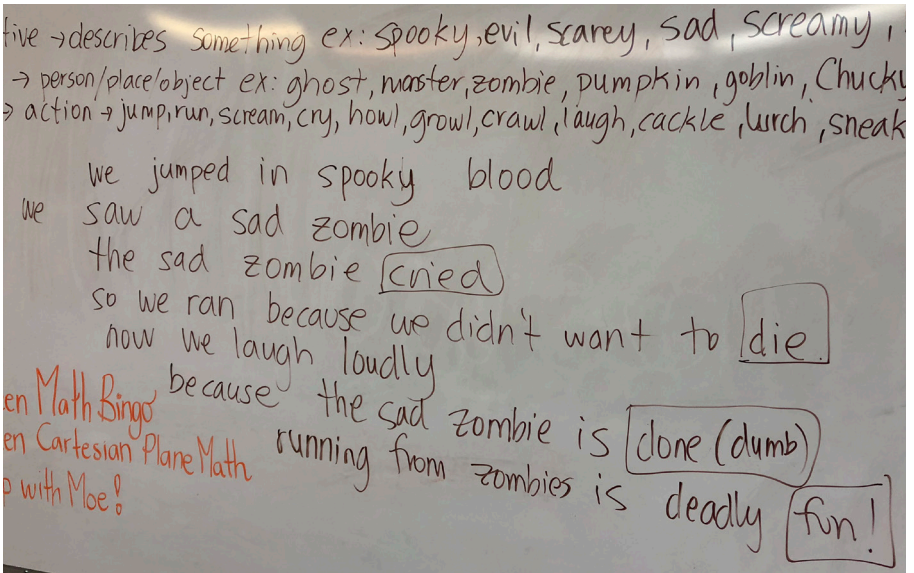 tive → describes something ex: spooky, evil, scarey, sad, screamy,
→ person/place/object ex: ghost, monster, zombie, pumpkin, goblin, Chucky
→ action → jump, run, scream, cry, howl, growl, crawl, laugh, cackle, lurch, sneak
we jumped in spooky blood
we saw a sad zombie
the sad zombie cried
so we ran because we didn't want to die.
now we laugh loudly
because the sad zombie is done (dumb)
running from zombies is deadly fun!
en Math Bingo
en Cartesian Plane Math
p with Moe!